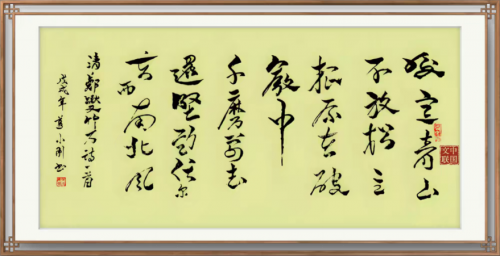 咬定青山
不放松立
根原在破
巖中
千磨萬击
還堅勁任尔
东西南北风
清鄭燮竹石诗一首
戊戌年小刚书
中国文联